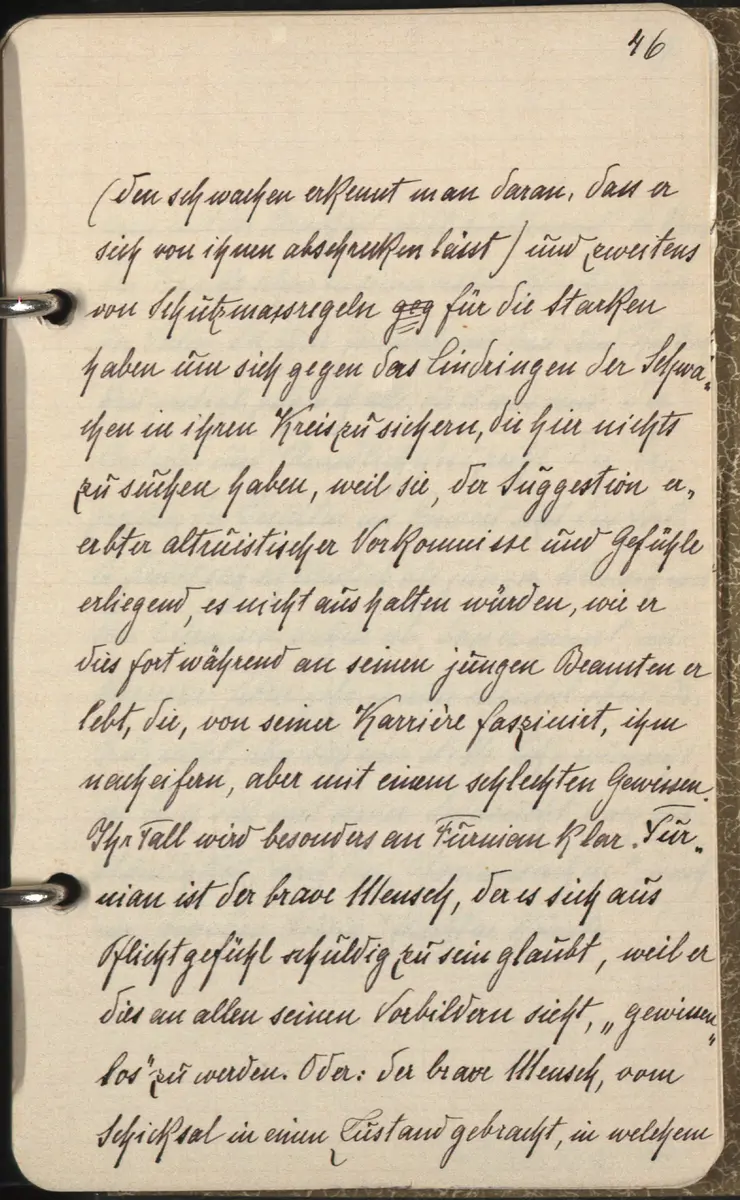 46
(den schwachen erkennt man daran, dass er
sich von ihnen abschrecken lässt) und zweitens
von Schutzmassregeln geg für die Starken
haben um sich gegen das Eindringen der Schwa„
chen in ihren Kreis zu sichern, die hier nichts
zu suchen haben, weil sie, der Suggestion er„
erbter altruistischer Vorkomnisse und Gefühle
erliegend, es nicht aushalten würden, wie er
dies fortwährend an seinen jungen Beamten er
lebt, die, von seiner Karrière faszinirt, ihm
nacheifern, aber mit einem schlechten Gewissen.
Ihr Fall wird besonders an Furnian klar. Fur„
nian ist der brave Mensch, der es sich aus
Pflichtgefühl schuldig zu sein glaubt, weil er
dies an allen seinen Vorbildern sieht, „gewissen„
los" zu werden. Oder: der brave Mensch, vom
Schicksal in einen Zustand gebracht, in welchem